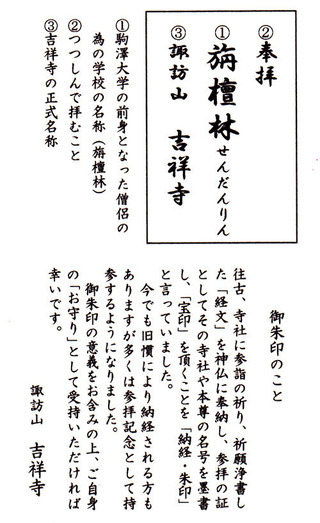 ②奉拝
①旃檀林せんだんりん
③諏訪山　吉祥寺
①駒澤大学の前身となった僧侶の
為の学校の名称（旃檀林）
②つつしんで拝むこと
③吉祥寺の正式名称
御朱印のこと
往古、寺社に参詣の祈り、祈願浄書し
た「経文」を神仏に奉納し、参拝の証
としてその寺社や本尊の名号を墨書
し、「宝印」を頂くことを「納経・朱印」
と言っていました。
今でも旧慣により納経される方も
ありますが多くは参拝記念として持
参するようになりました。
御朱印の意義をお含みの上、ご自身
の「お守り」として受持いただければ
幸いです。
諏訪山　吉祥寺